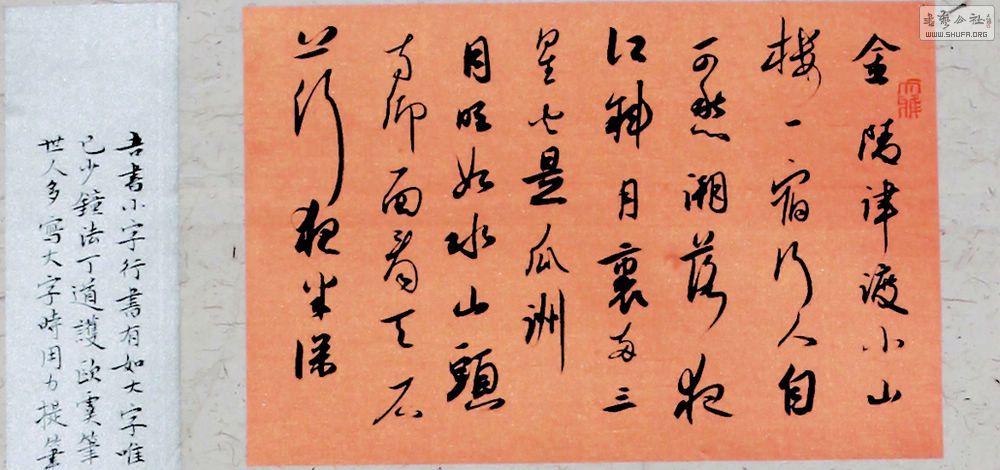 金陵津渡小山
樓一宿行人自
可愁潮落夜
江斜月裏两三
星火是瓜洲
月明如水山頭
寺仰面看天石
上行夜半深
吾書小字行書有如大字唯
已少鐘法丁道護歐虞筆
世人多寫大字時用力提筆
書藝公社
WWW.SHUFA.ORG